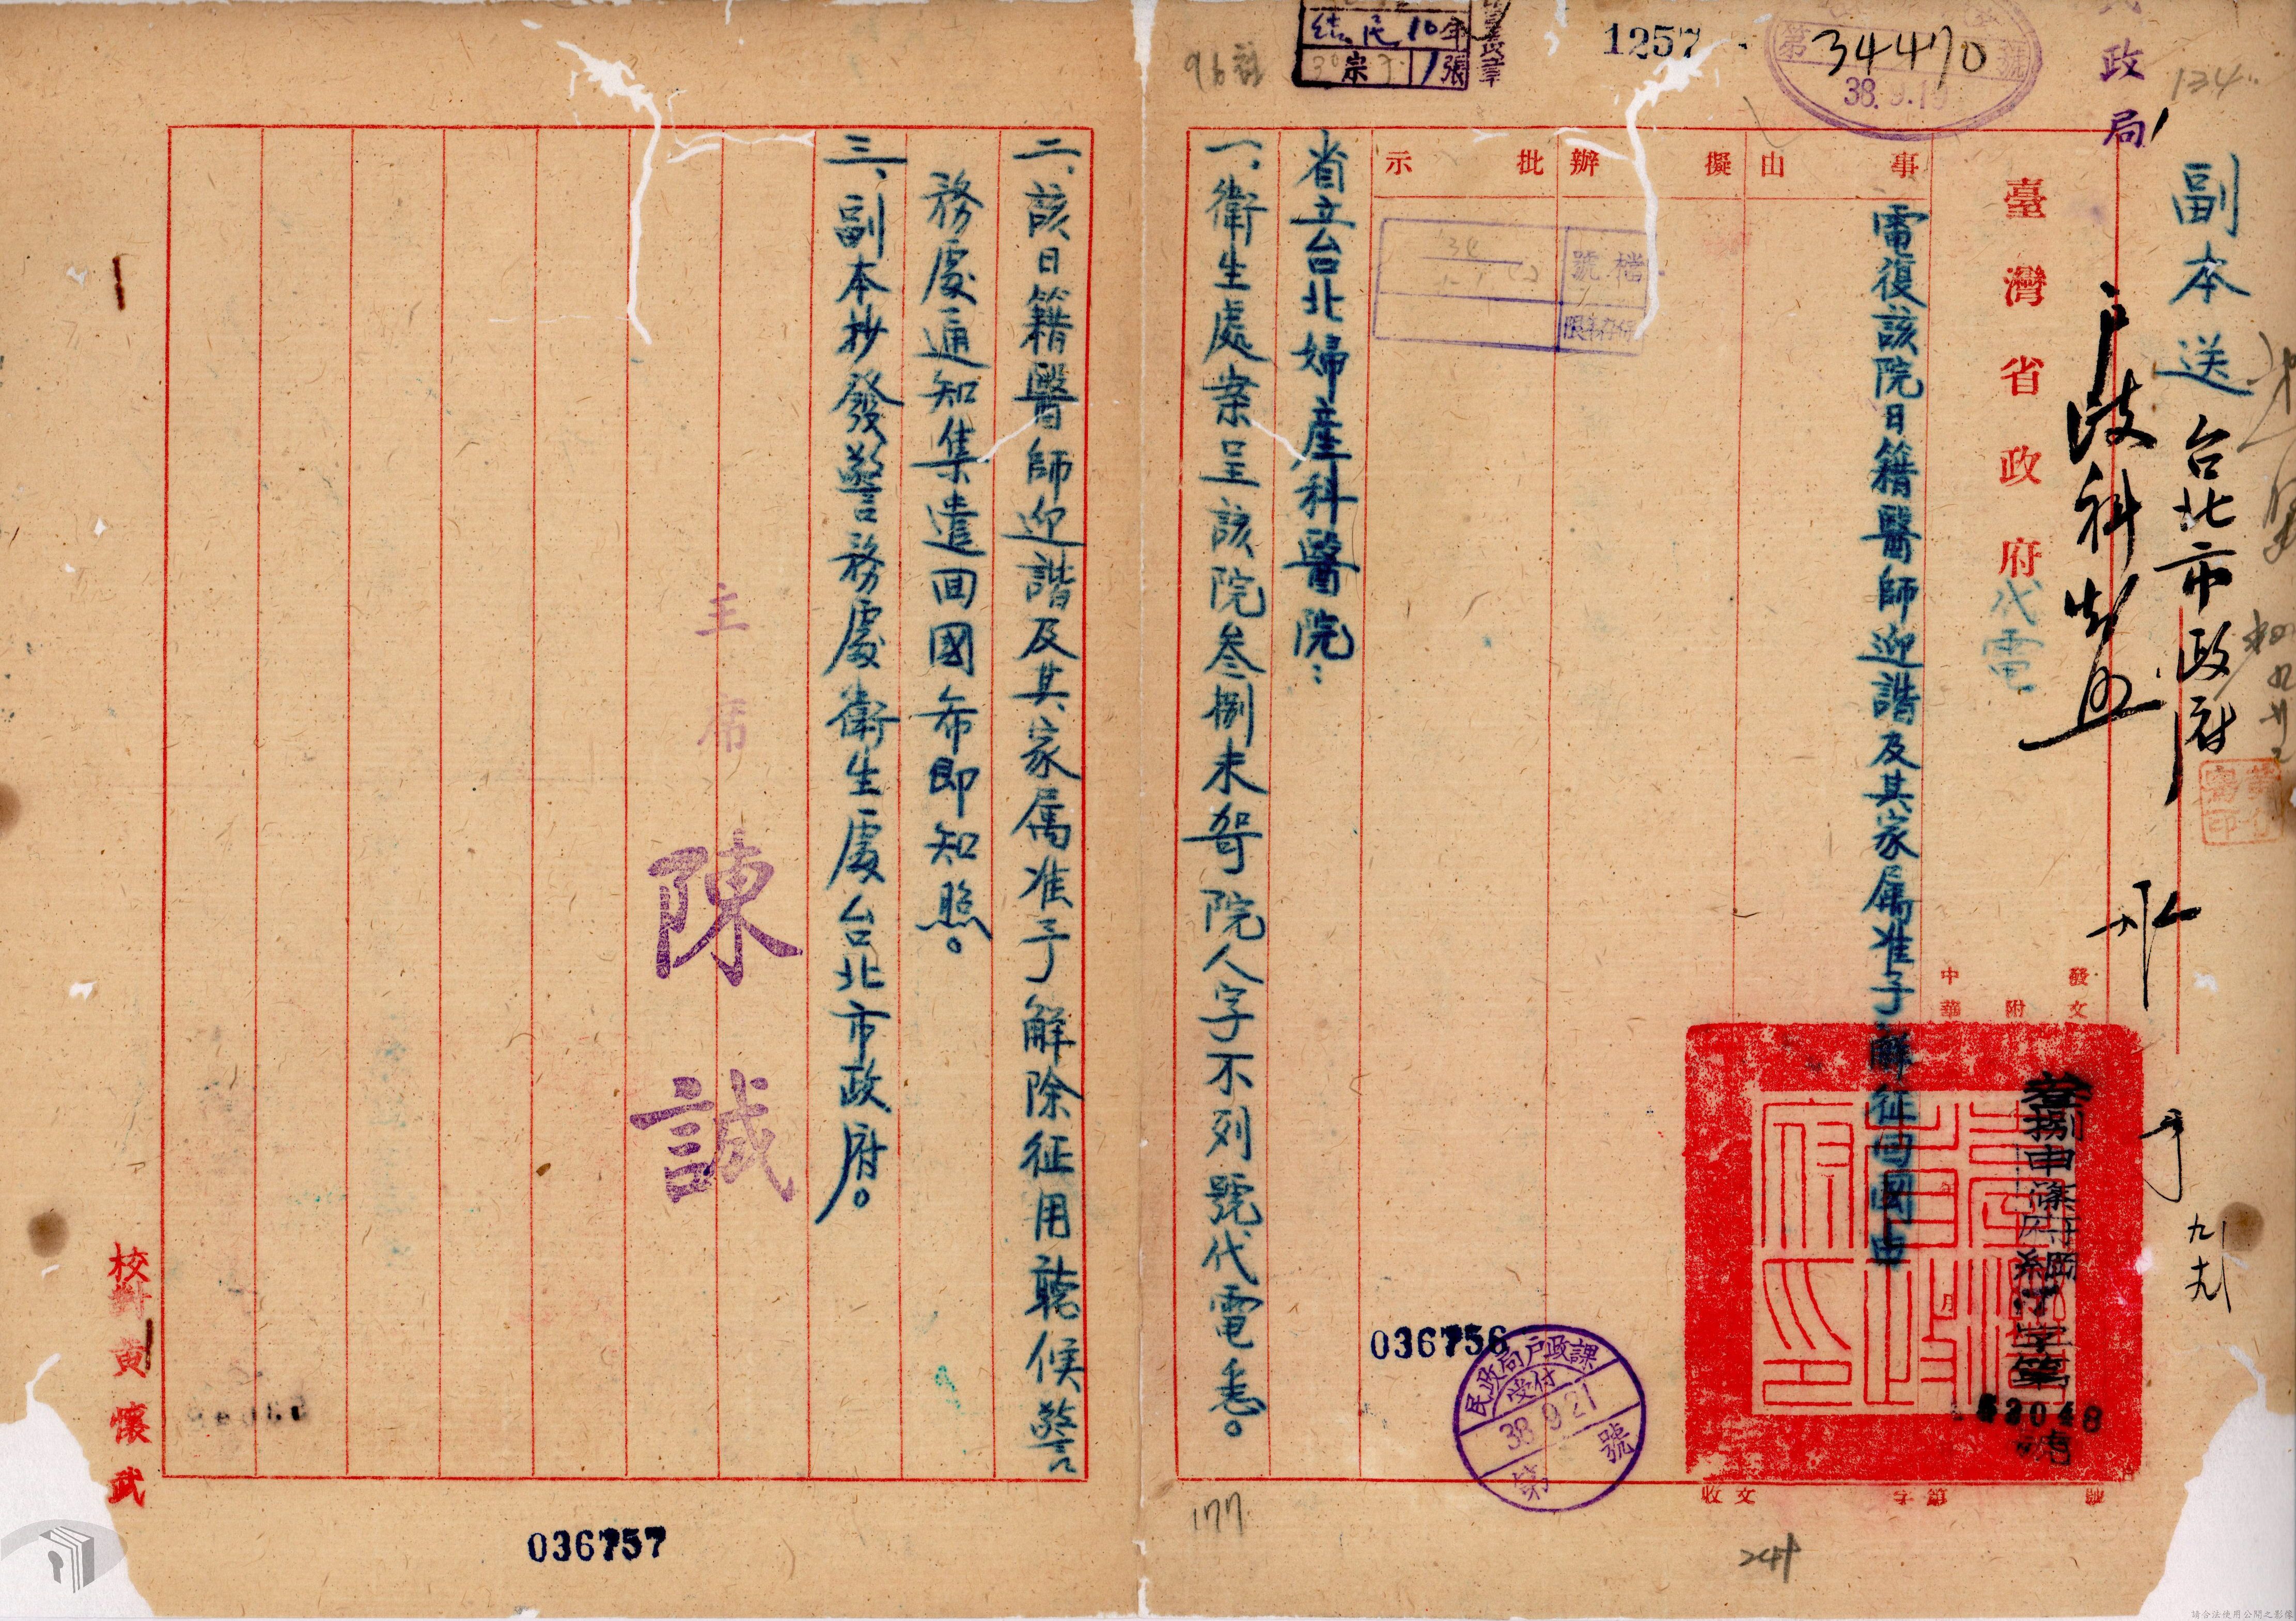 民政局
134
副本送台北市政府
臺灣省政府代電
第34470號
38.9.19
1257
事由
擬辦
批示
電復該院日籍醫師迎諧及其家属准予解征回國由
發文
附
中華
月
叁捌申
府綱
字第
53048
號
九
檔號
保存年限
省立台北婦產科醫院:
一、衛生處案呈該院叁捌未哿院人字不列號代電悉。
036756
民政局戶政課
受付
38.9.21
第 號
收文
字第
號
177
241
結民10年
宗
1張
二、該日籍醫師迎諧及其家属准予解除征用聽候警
務處通知集遣回國希即知照。
三、副本抄發警務處衛生處台北市政府。
主席 陳誠
校對 黃懷武
036757
請合法使用公開之影像